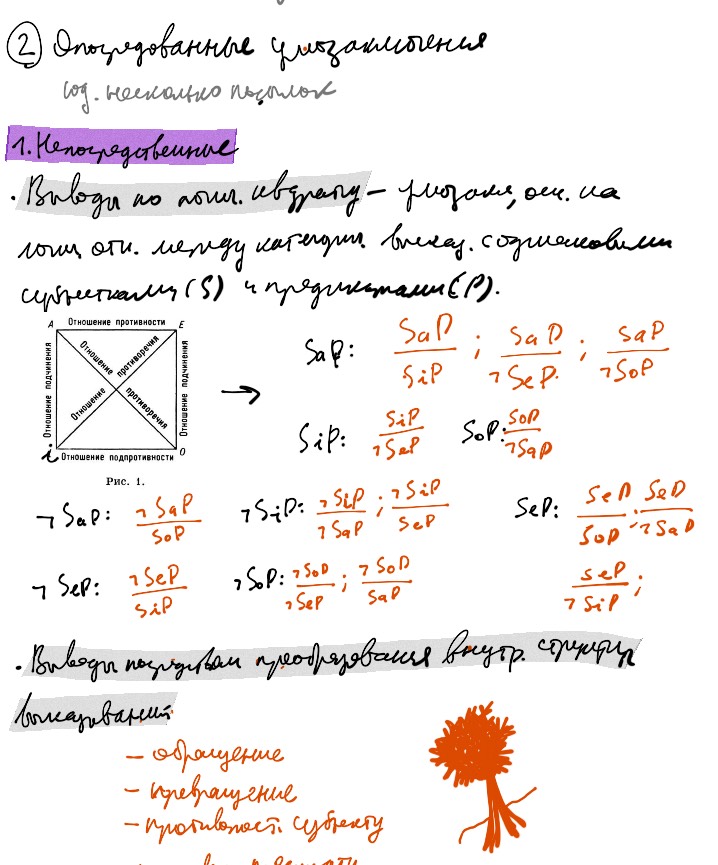 ② Опосредованные умозаключения
сод. несколько посылок
1. Непосредственные
· Выводы по логич. квдрату – умозакл, осн. на
логич отн. между категорич. высказ. с одинаковыми
субъектами (S) и предикатами (P).
A Отношение противности E
Отношение подчинения
Отношение противоречия
Отношение противоречия
Отношение подчинения
i Отношение подпротивности O
Рис. 1.
→
SaP: SaP/SiP ; SaP/¬SeP. ; SaP/¬SoP
SiP: SiP/¬SeP SoP: SoP/¬SaP
¬SaP: ¬SaP/SoP ¬SiP: ¬SiP/¬SaP ; ¬SiP/SeP SeP: SeP/SoP ; SeP/¬SaP
¬SeP: ¬SeP/SiP ¬SoP: ¬SoP/¬SeP ; ¬SoP/SaP SeP/¬SiP ;
· Выводы посредством преобразования внутр. структур
высказываний
– обращение
– превращение
– противопост. субъекту